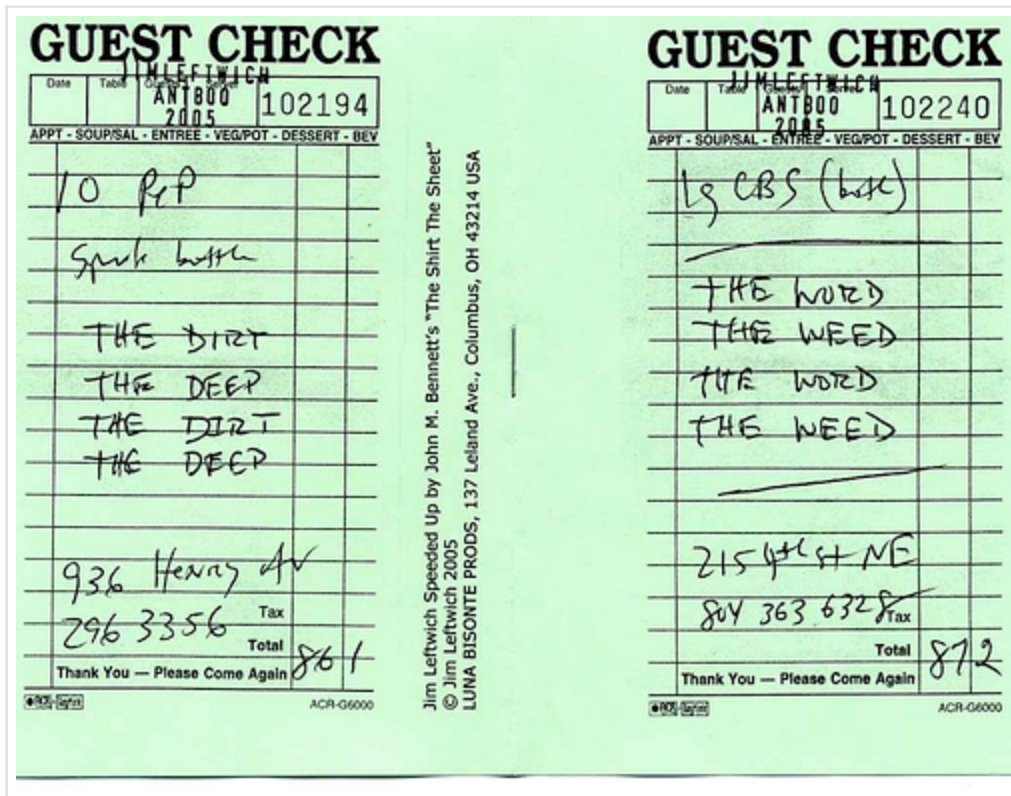 GUEST CHECK
JIMLEFTWICH
Date Table Guests Server
ANTBOO
2005
102194
APPT - SOUP/SAL - ENTREE - VEG/POT - DESSERT - BEV
10 PeP
bottle
THE DIRT
THE DEEP
THE DIRT
THE DEEP
936 Henry AV
296 3356
Tax
Total 861
Thank You — Please Come Again
ACR-G6000
Jim Leftwich Speeded Up by John M. Bennett's "The Shirt The Sheet"
© Jim Leftwich 2005
LUNA BISONTE PRODS, 137 Leland Ave., Columbus, OH 43214 USA
GUEST CHECK
JIMLEFTWICH
Date Table Guests Server
ANTBOO
2005
102240
APPT - SOUP/SAL - ENTREE - VEG/POT - DESSERT - BEV
lg CBS (both)
THE WORD
THE WEED
THE WORD
THE WEED
215 4th St NE
804 363 6328
Tax
Total 872
Thank You — Please Come Again
ACR-G6000